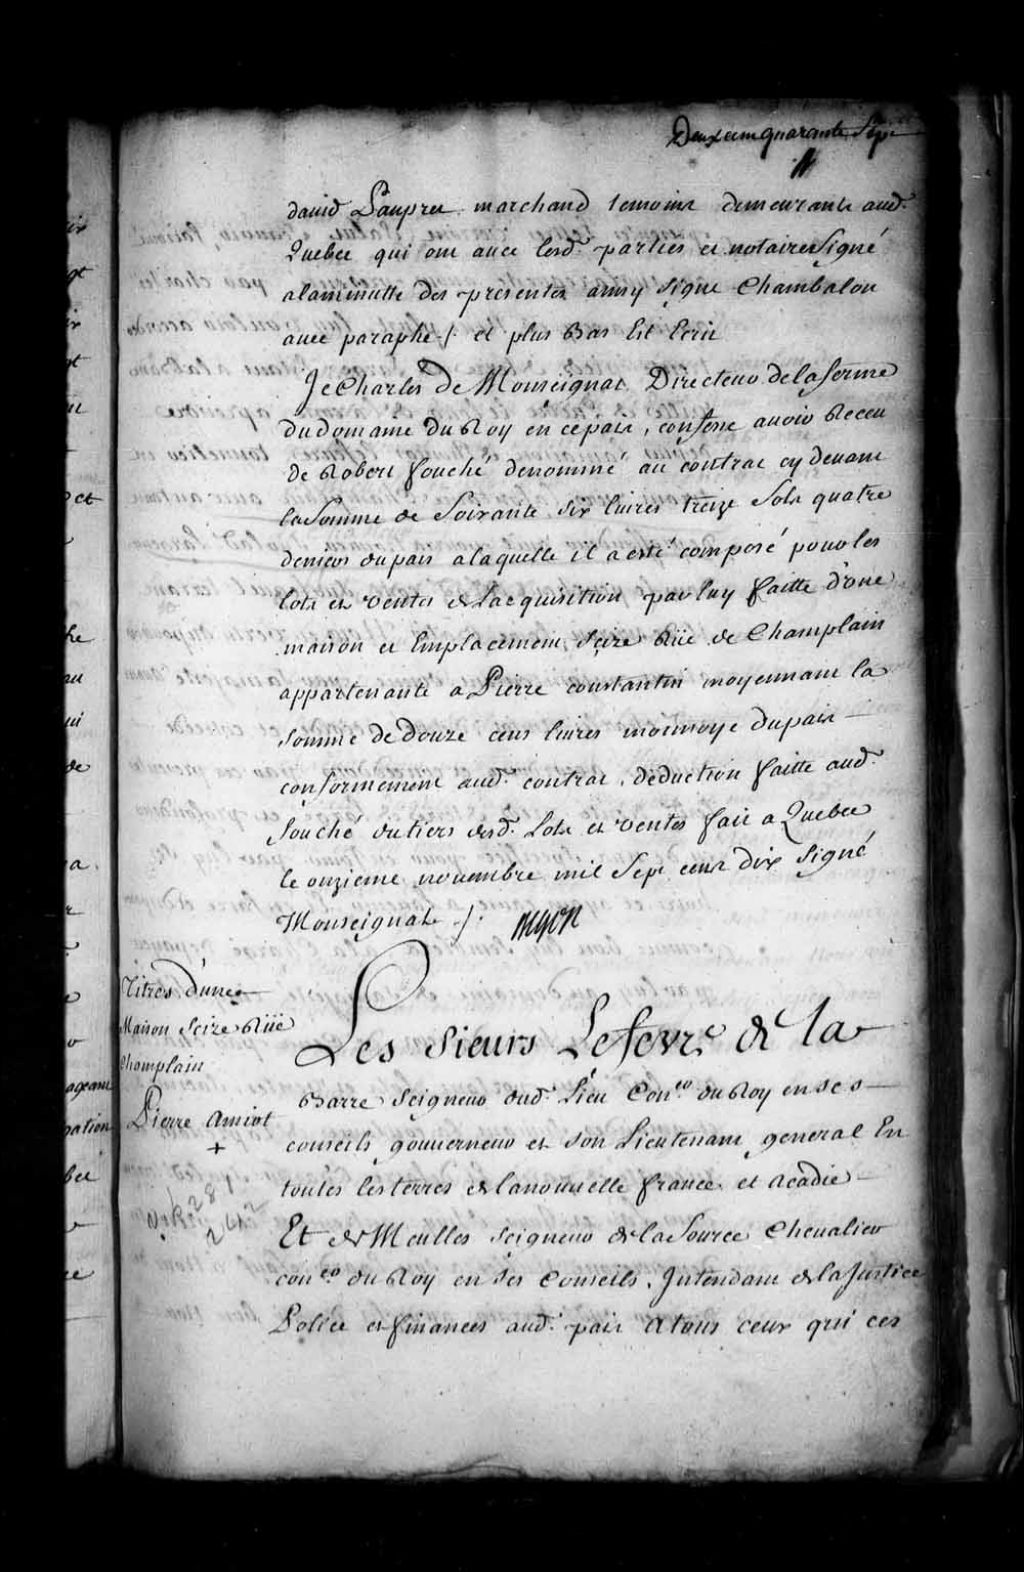 Deux cem quarante Sept
david Laupret marchand temoins demeurants aud.
Quebec qui ont avec lesd. parties et notaire Signé
a laminutte des presentes ainsy Signe Chambalon
avec paraphe /. et plus Bas Est Ecrit
Je Charles de Monseignat Directeur de la ferme
du domaine du Roy en ce pais, confesse avoir Receu
de Robert fouché denommé au contrat cy devant
la Somme de Soixante Six livres treize Sols quatre
deniers du pais a laquelle il a esté composé pour les
lots et ventes de Lacquisition par luy faitte d'une
maison et Emplacement seize Rüe de Champlain
appartenante a Pierre constantin moyennant la
somme de Douze cens livres monnoye du pais
conformement aud. contrat, deduction faitte aud.
fouché du tiers desd. Lots et ventes fait a Quebec
le onzieme novembre mil Sept cens dix Signé
Monseignat /.
Titres d'une
Maison seize Rüe
Champlain
Pierre Amiot
+
28
242
Les Sieurs Lefevre de la
Barre Seigneur dud. Lieu Con.er du Roy en ses
conseils gouverneur et son Lieutenant general En
toutes les terres de la nouvelle france et Acadie
Et de Meulles Seigneur de la Source Chevalier
con.er du Roy en ses Conseils, Intendant de la Justice
Police et finances aud. pais A tous ceux qui ces